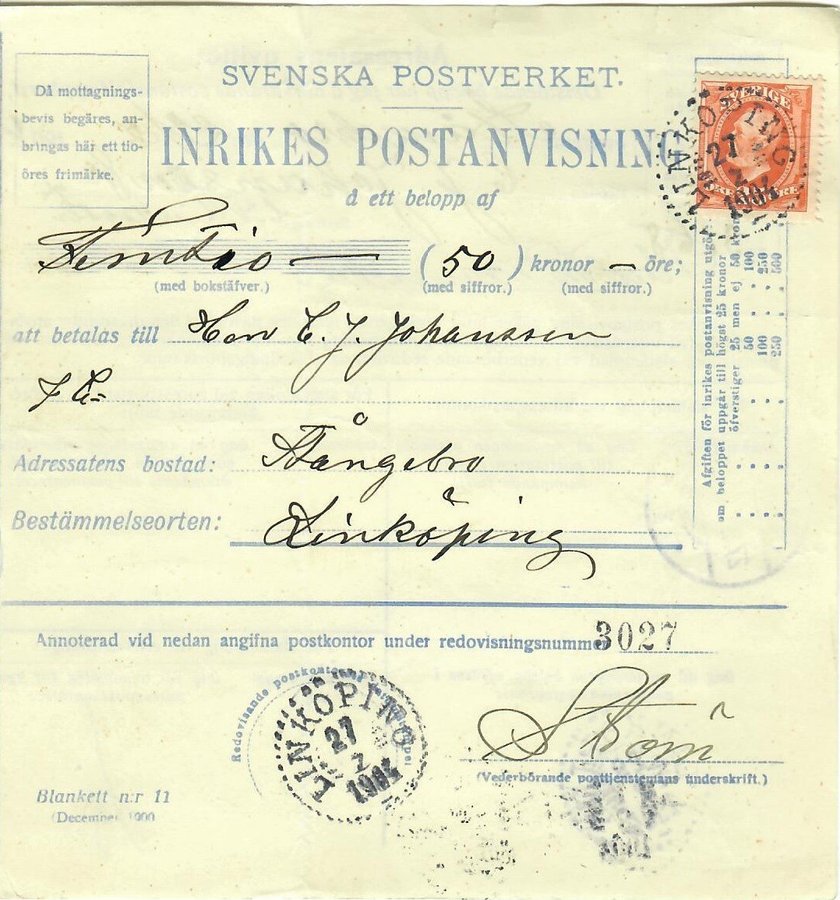 SVENSKA POSTVERKET.
Då mottagnings-
bevis begäres, an-
bringas här ett tio-
öres frimärke.
INRIKES POSTANVISNING
å ett belopp af
SVERIGE
LINKÖPING
27
7
1904
Femtio — (50) kronor — öre;
(med bokstäfver.) (med siffror.) (med siffror.)
att betalas till Herr C. J. Johansson
Adressatens bostad: Stångebro
Bestämmelseorten: Linköping
Afgiften för inrikes postanvisning utgör
om beloppet uppgår till högst 25 kronor
öfverstiger 25 men ej 50 kronor
50 „ „ 100
100 „ „ 250
250 „ „ 500
Annoterad vid nedan angifna postkontor under redovisningsnummer 3027
Redovisande postkontorets
LINKÖPING
27
7
1904
Ström
(Vederbörande posttjenstemans underskrift.)
Blankett n:r 11
(December 1900